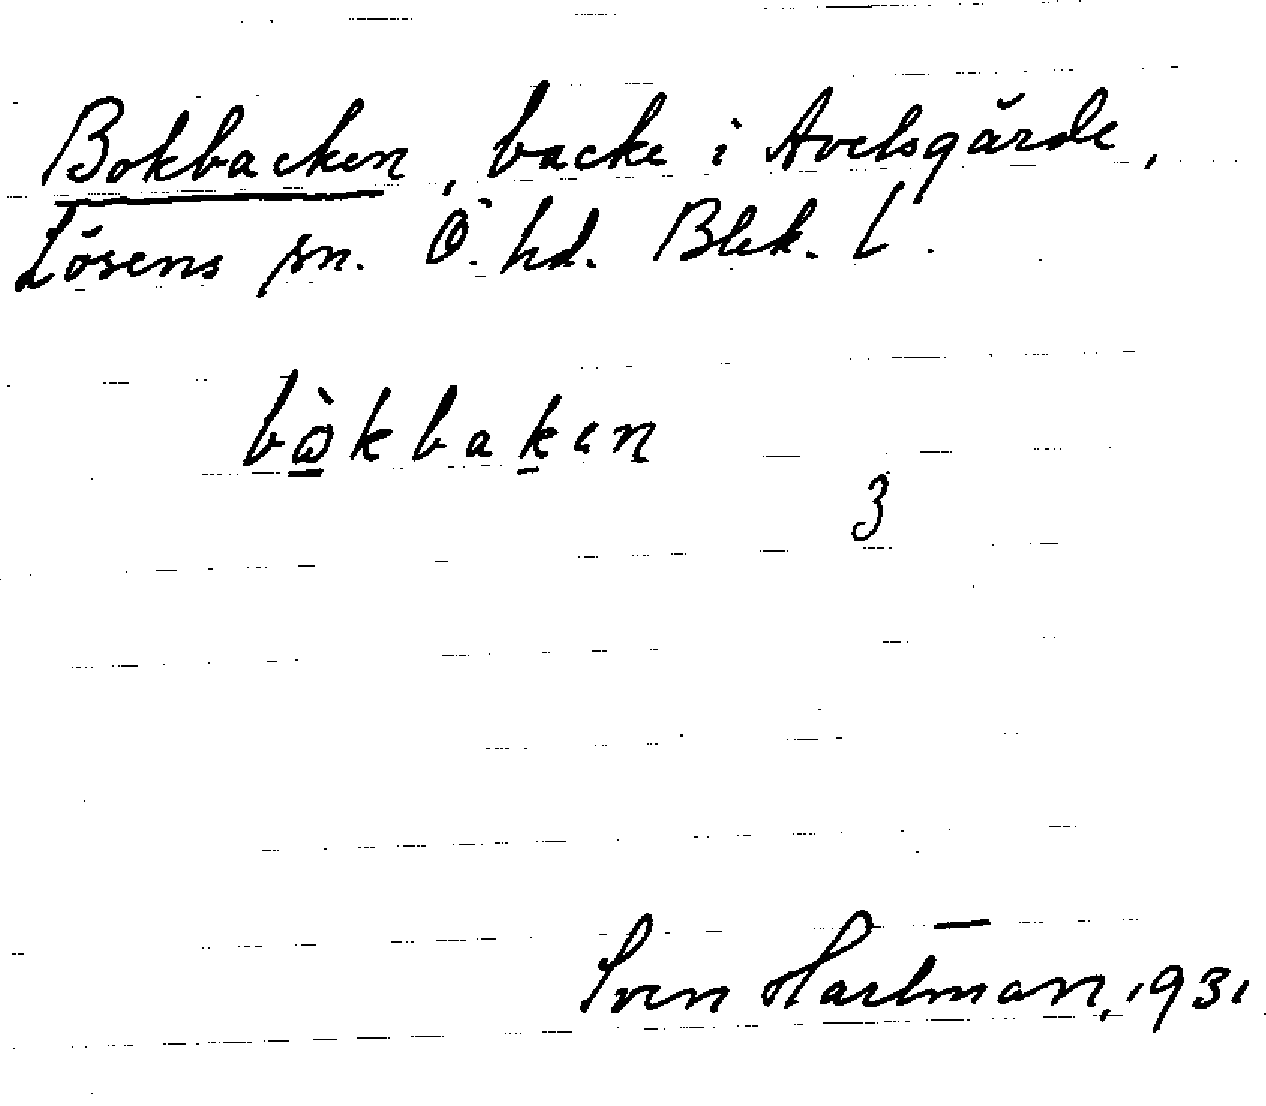 Bokbacken, backe i Avelsgärde,
Lösens sn. Ö. hd. Blek. l.
bòkbaken
3
Sven Hartman, 1931